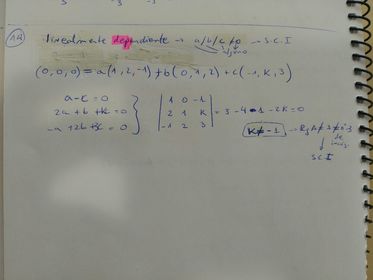 12
linealmente dependiente → a/b/c ≠0 → S.C.I
(0,0,0) = a(1,2,-1) + b(0,1,2) + c(-1,K,3)
a-c=0
2a + b + Kc=0
-a +2b+3c=0
1 0 -1
2 1 K
-1 2 3
= 3-4-1-2K=0
K≠-1
S.C.I